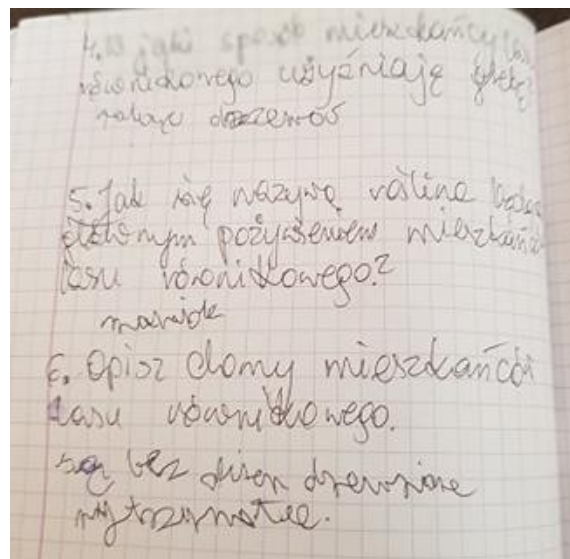 4. W jaki sposób mieszkańcy lasu
równikowego użyźniają glebę?
drzewos
5. Jak się nazywa roślina będąca
głównym pożywieniem mieszkańców
lasu równikowego?
maniok
6. Opisz domy mieszkańców
lasu równikowego.
są bez okien drewniane
wytrzymałe.